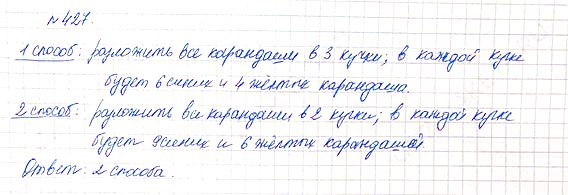 №427.
1 способ: разложить все карандаши в 3 кучки; в каждой кучке
будет 6 синих и 4 жёлтых карандаша.
2 способ: разложить все карандаши в 2 кучки; в каждой кучке
будет 9 синих и 6 жёлтых карандашей
Ответ: 2 способа.